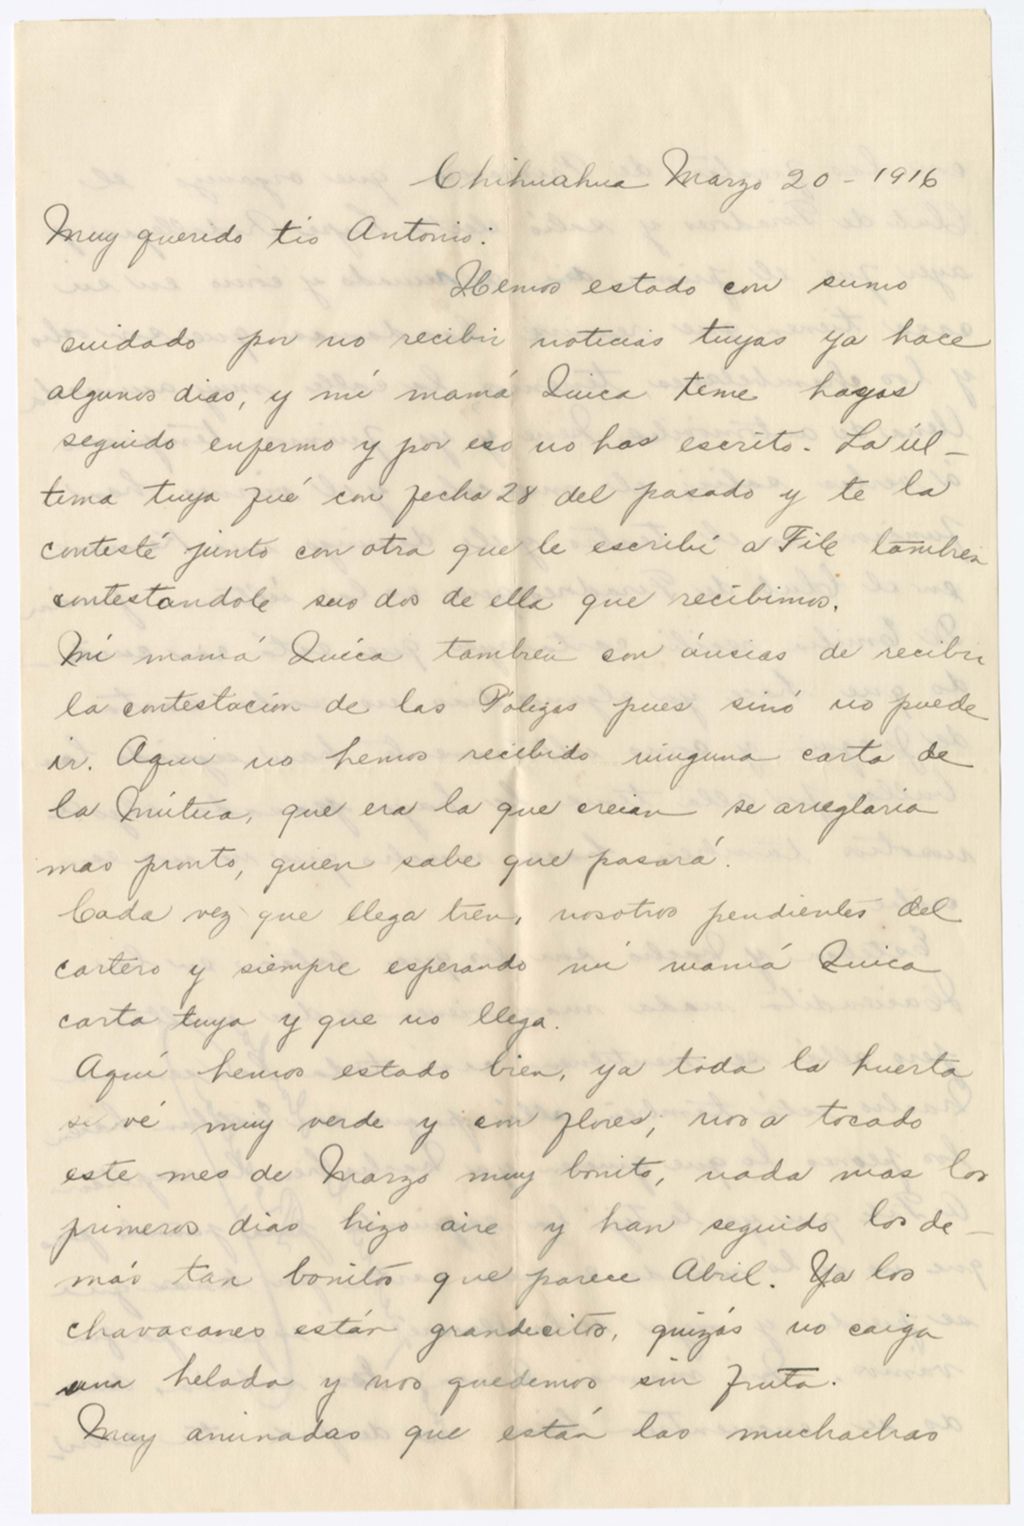 Chihuahua Marzo 20 - 1916
Muy querido tío Antonio:
Hemos estado con sumo
cuidado por no recibir noticias tuyas ya hace
algunos dias, y mi mamá Quica teme hayas
seguido enfermo y por eso no has escrito. La úl-
tima tuya fué con fecha 28 del pasado y te la
contesté junto con otra que le escribí a File tambien
contestandole sus dos de ella que recibimos.
Mi mamá Quica tambien con ánsias de recibir
la contestación de las Pólizas pues sinó no puede
ir. Aqui no hemos recibido ninguna carta de
la Mútua, que era la que creian se arreglaria
mas pronto, quien sabe que pasará.
Cada vez que llega tren, nosotros pendientes del
cartero y siempre esperando mi mamá Quica
carta tuya y que no llega.
Aquí hemos estado bien, ya toda la huerta
se vé muy verde y con flores; nos a tocado
este mes de Marzo muy bonito, nada mas los
primeros dias hizo aire y han seguido los de-
más tan bonitos que parece Abril. Ya los
chavacanes están grandecitos, quizás no caiga
una helada y nos quedemos sin fruta.
Muy animadas que están las muchachas